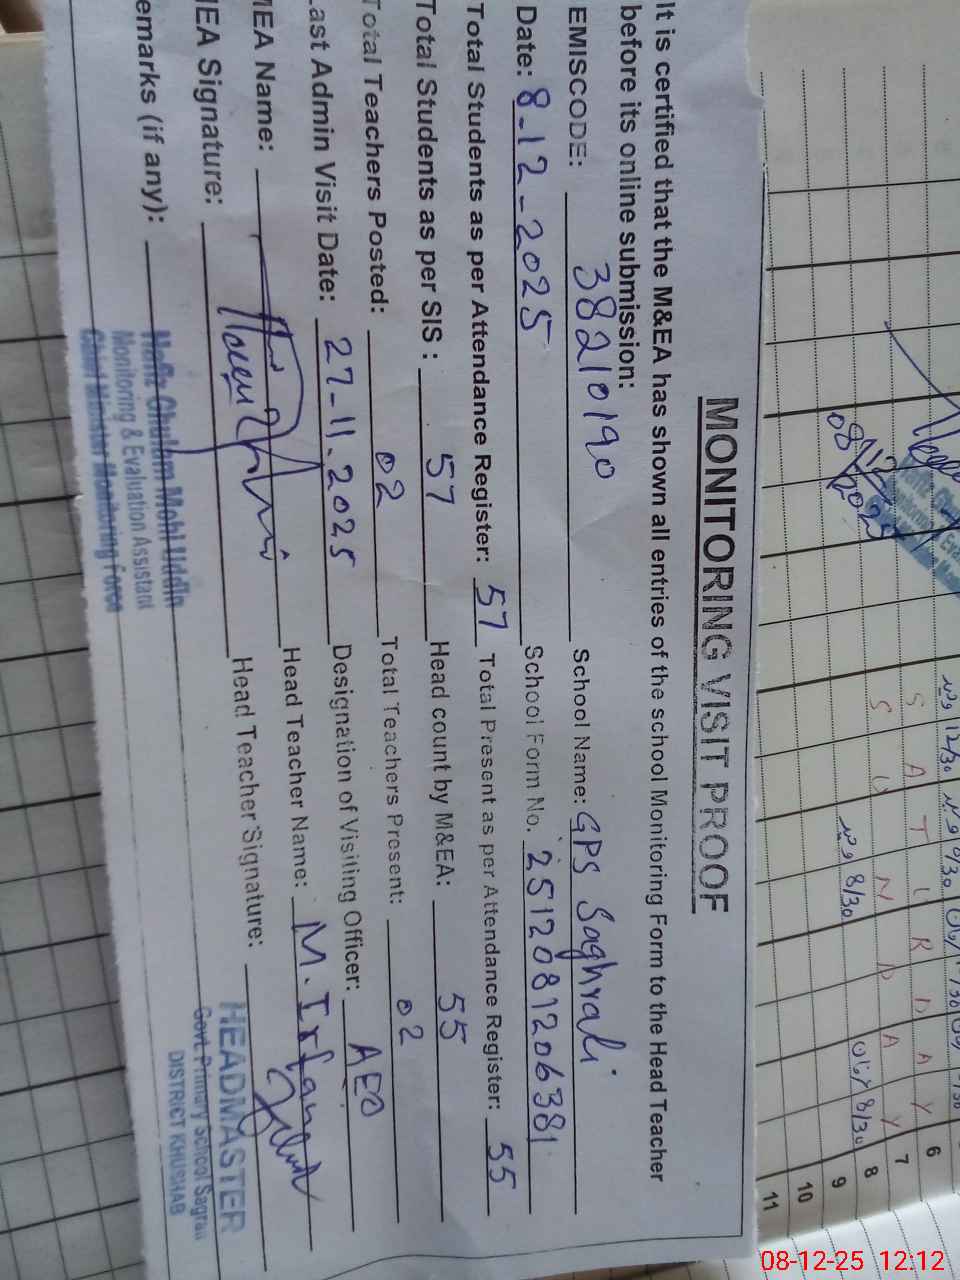 MONITORING VISIT PROOF
It is certified that the M&EA has shown all entries of the school Monitoring Form to the Head Teacher
before its online submission:
EMISCODE: 38210190 School Name: GPS Saghrali
Date: 8-12-2025 School Form No. 2512081206381
Total Students as per Attendance Register: 57 Total Present as per Attendance Register: 55
Total Students as per SIS : 57 Head count by M&EA: 55
Total Teachers Posted: 02 Total Teachers Present: 02
Last Admin Visit Date: 27-11-2025 Designation of Visiting Officer: AEO
MEA Name: Head Teacher Name: M. Irfan
MEA Signature: Head Teacher Signature:
emarks (if any):
Hafiz Ghulam Mohi Uddin
Monitoring & Evaluation Assistant
Chief Minister Monitoring Force
HEADMASTER
Govt. Primary School Sagral
DISTRICT KHUSHAB
08/12/2025
SATURDAY
SUNDAY
6
7
8
9
10
11
08-12-25 12:12